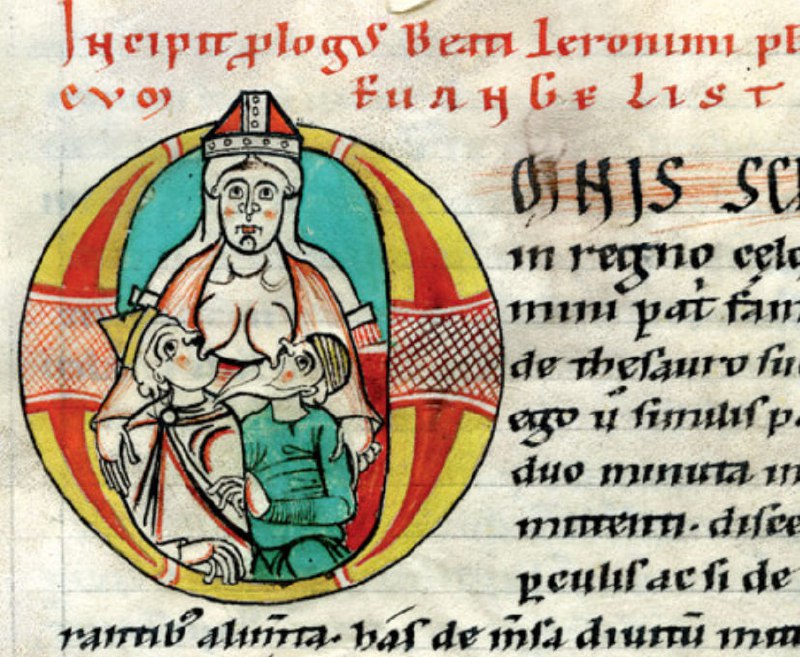 Incipit plogus Beati Ieronimi p
EUANGELIST
OMNIS SC
in regno cęlo
mini pat fam
de thesauro su
ego u similis pa
duo minuta in
mittenti. disce
pculis ac si de
rantib alimta. has de msa diuitu